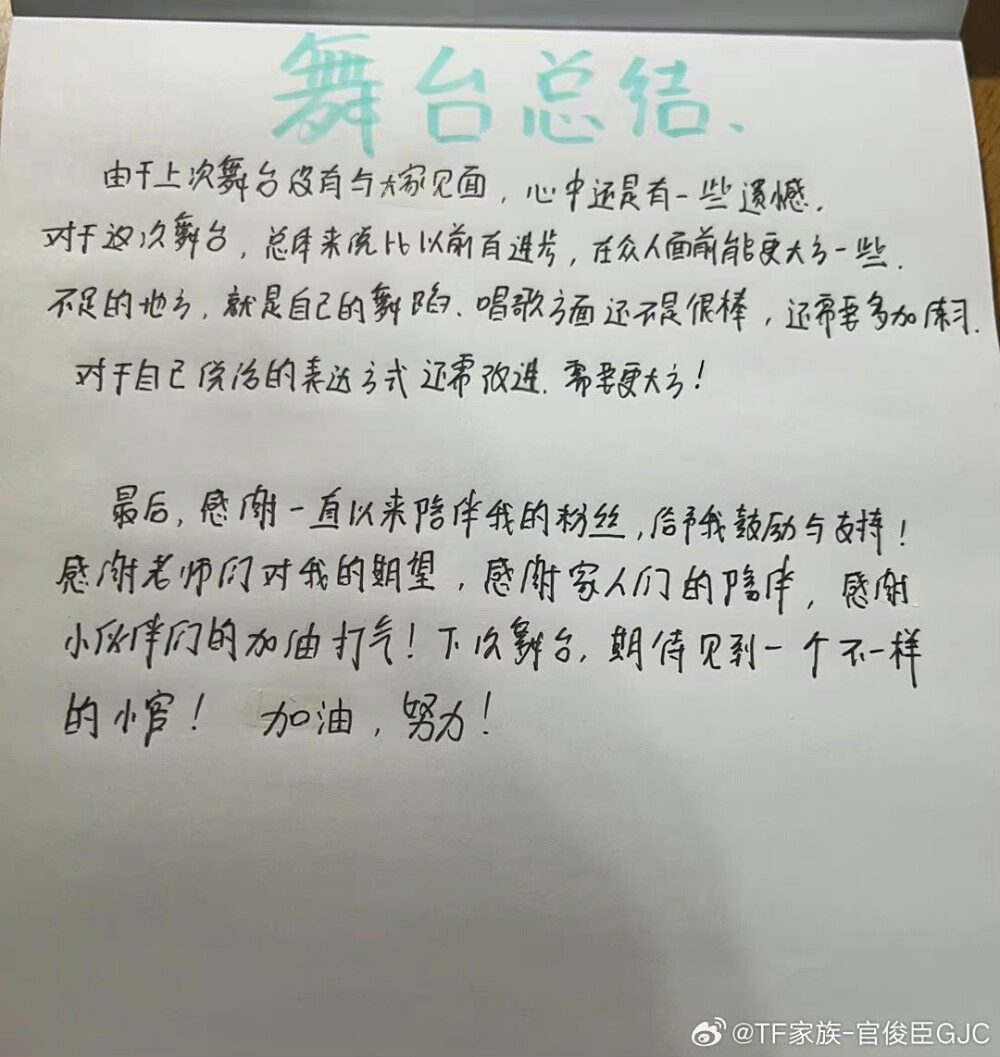 舞台总结.
由于上次舞台没有与大家见面，心中还是有一些遗憾.
对于这次舞台，总体来说比以前有进步，在众人面前能更大方一些.
不足的地方，就是自己的舞蹈、唱歌方面还不是很棒，还需要多加练习.
对于自己说话的表达方式还需改进.需要更大方！
最后，感谢一直以来陪伴我的粉丝，给予我鼓励与支持！
感谢老师们对我的期望，感谢家人们的陪伴，感谢
小伙伴们的加油打气！下次舞台，期待见到一个不一样
的小官！ 加油，努力！
@TF家族-官俊臣GJC